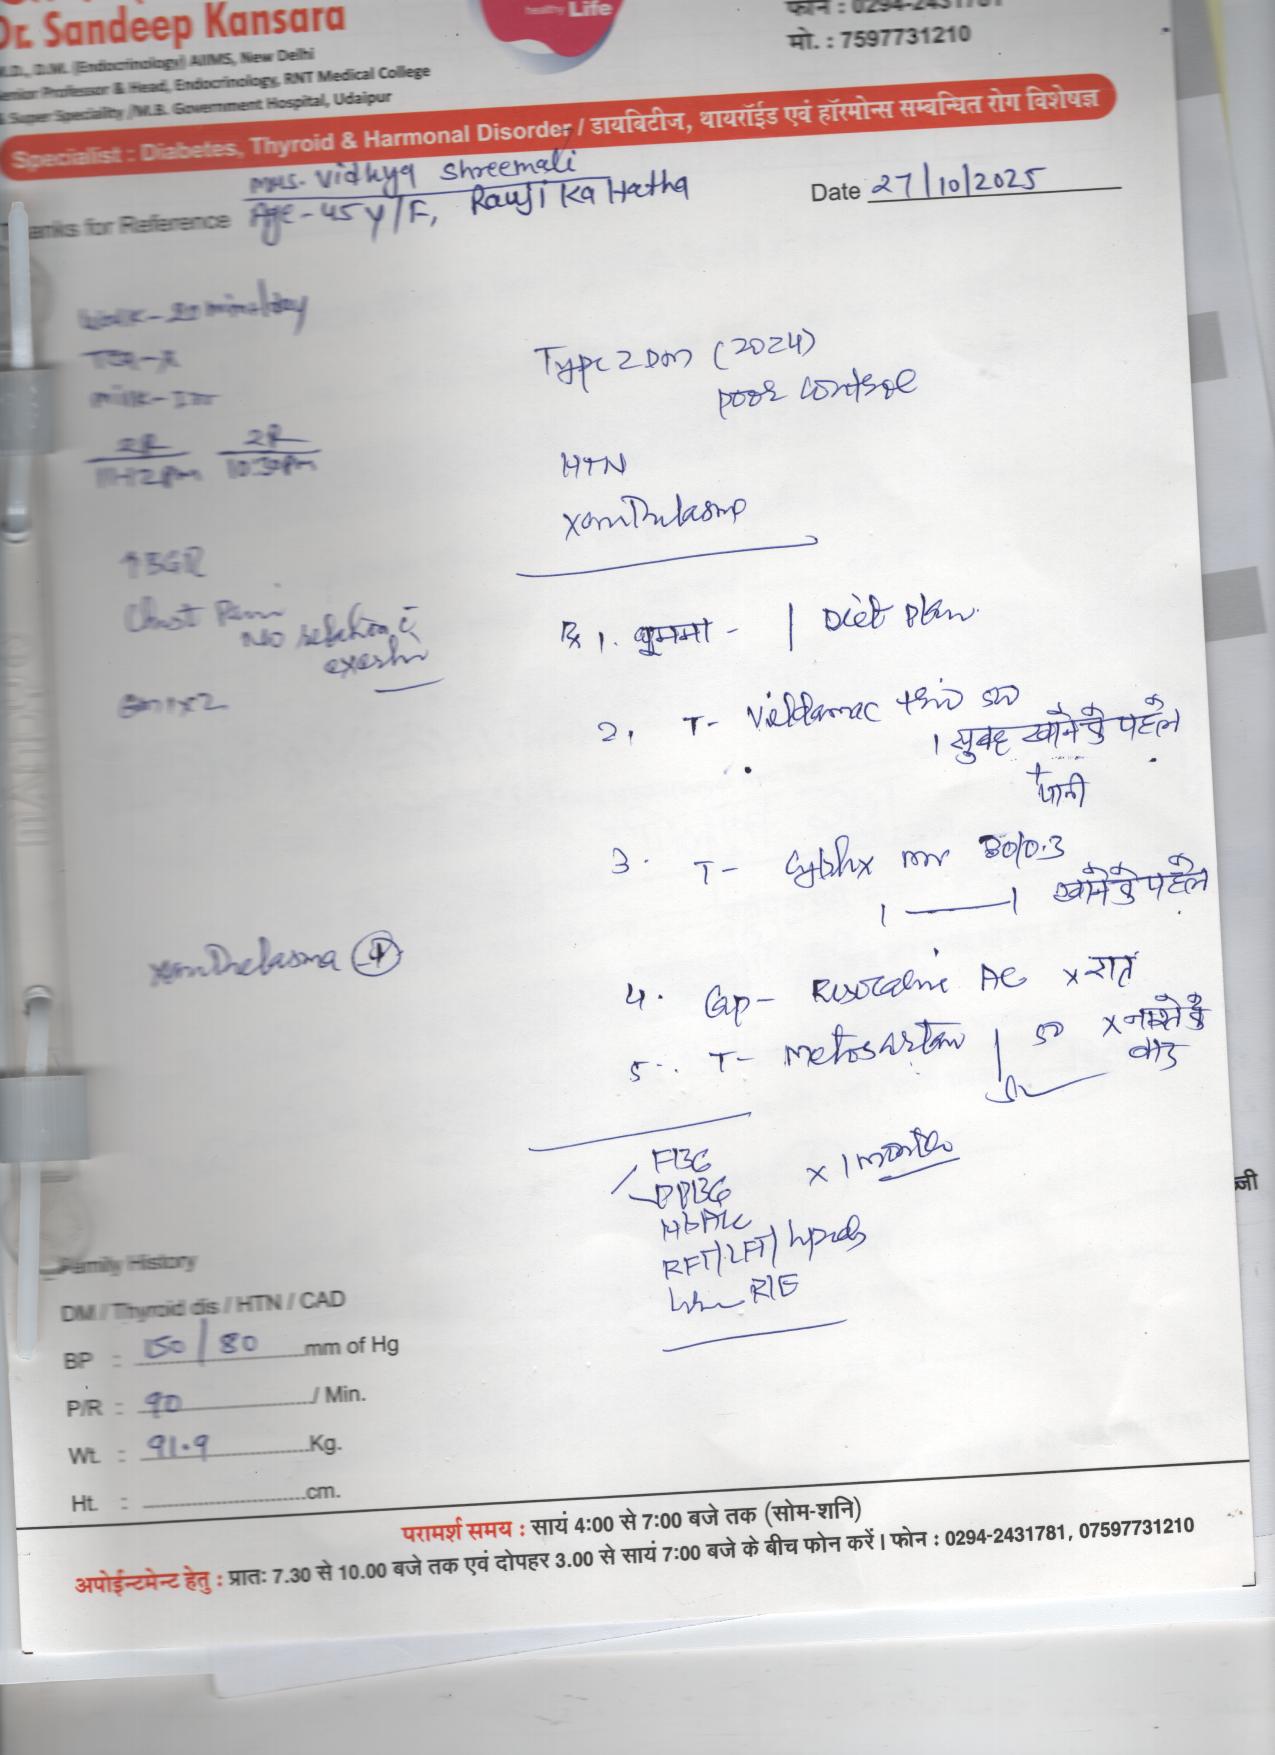 Dr. Sandeep Kansara
M.D., D.M. (Endocrinology) AIIMS, New Delhi
Senior Professor & Head, Endocrinology, RNT Medical College
& Super Speciality / M.B. Government Hospital, Udaipur
healthy Life
फोन : 0294-2431781
मो. : 7597731210
Specialist : Diabetes, Thyroid & Harmonal Disorder / डायबिटीज, थायरॉईड एवं हॉरमोन्स सम्बन्धित रोग विशेषज्ञ
Mrs. Vidhya Shreemali
Thanks for Reference Age - 45 y/F, Rawji Ka Hatha
Date 27/10/2025
Walk - 20 mins/day
milk -
2R 2R
10:30pm
Type 2 DM (2024)
poor control
HTN
Xanthelasma
↑BGR
Chest Pain
No relation c̄
Rx 1. घूमना - | Diet Plan.
2. T- Vildamac 50
1 सुबह खाने के पहले
+
पानी
3. T- mr 80/0.3
1 — 1 खाने के पहले
Xanthelasma +
4. Cap- AC x रात
5. T- Metosartan 50 x नाश्ते के
बाद
FBG
PPBG
HbA1c
RFT/LFT/Lipids
R/E
x 1 month
Family History
DM / Thyroid dis / HTN / CAD
BP : 150/80 mm of Hg
P/R : 90 / Min.
Wt. : 91.9 Kg.
Ht. : cm.
ब्जी
परामर्श समय : सायं 4:00 से 7:00 बजे तक (सोम-शनि)
अपोईन्टमेन्ट हेतु : प्रातः 7.30 से 10.00 बजे तक एवं दोपहर 3.00 से सायं 7:00 बजे के बीच फोन करें। फोन : 0294-2431781, 07597731210